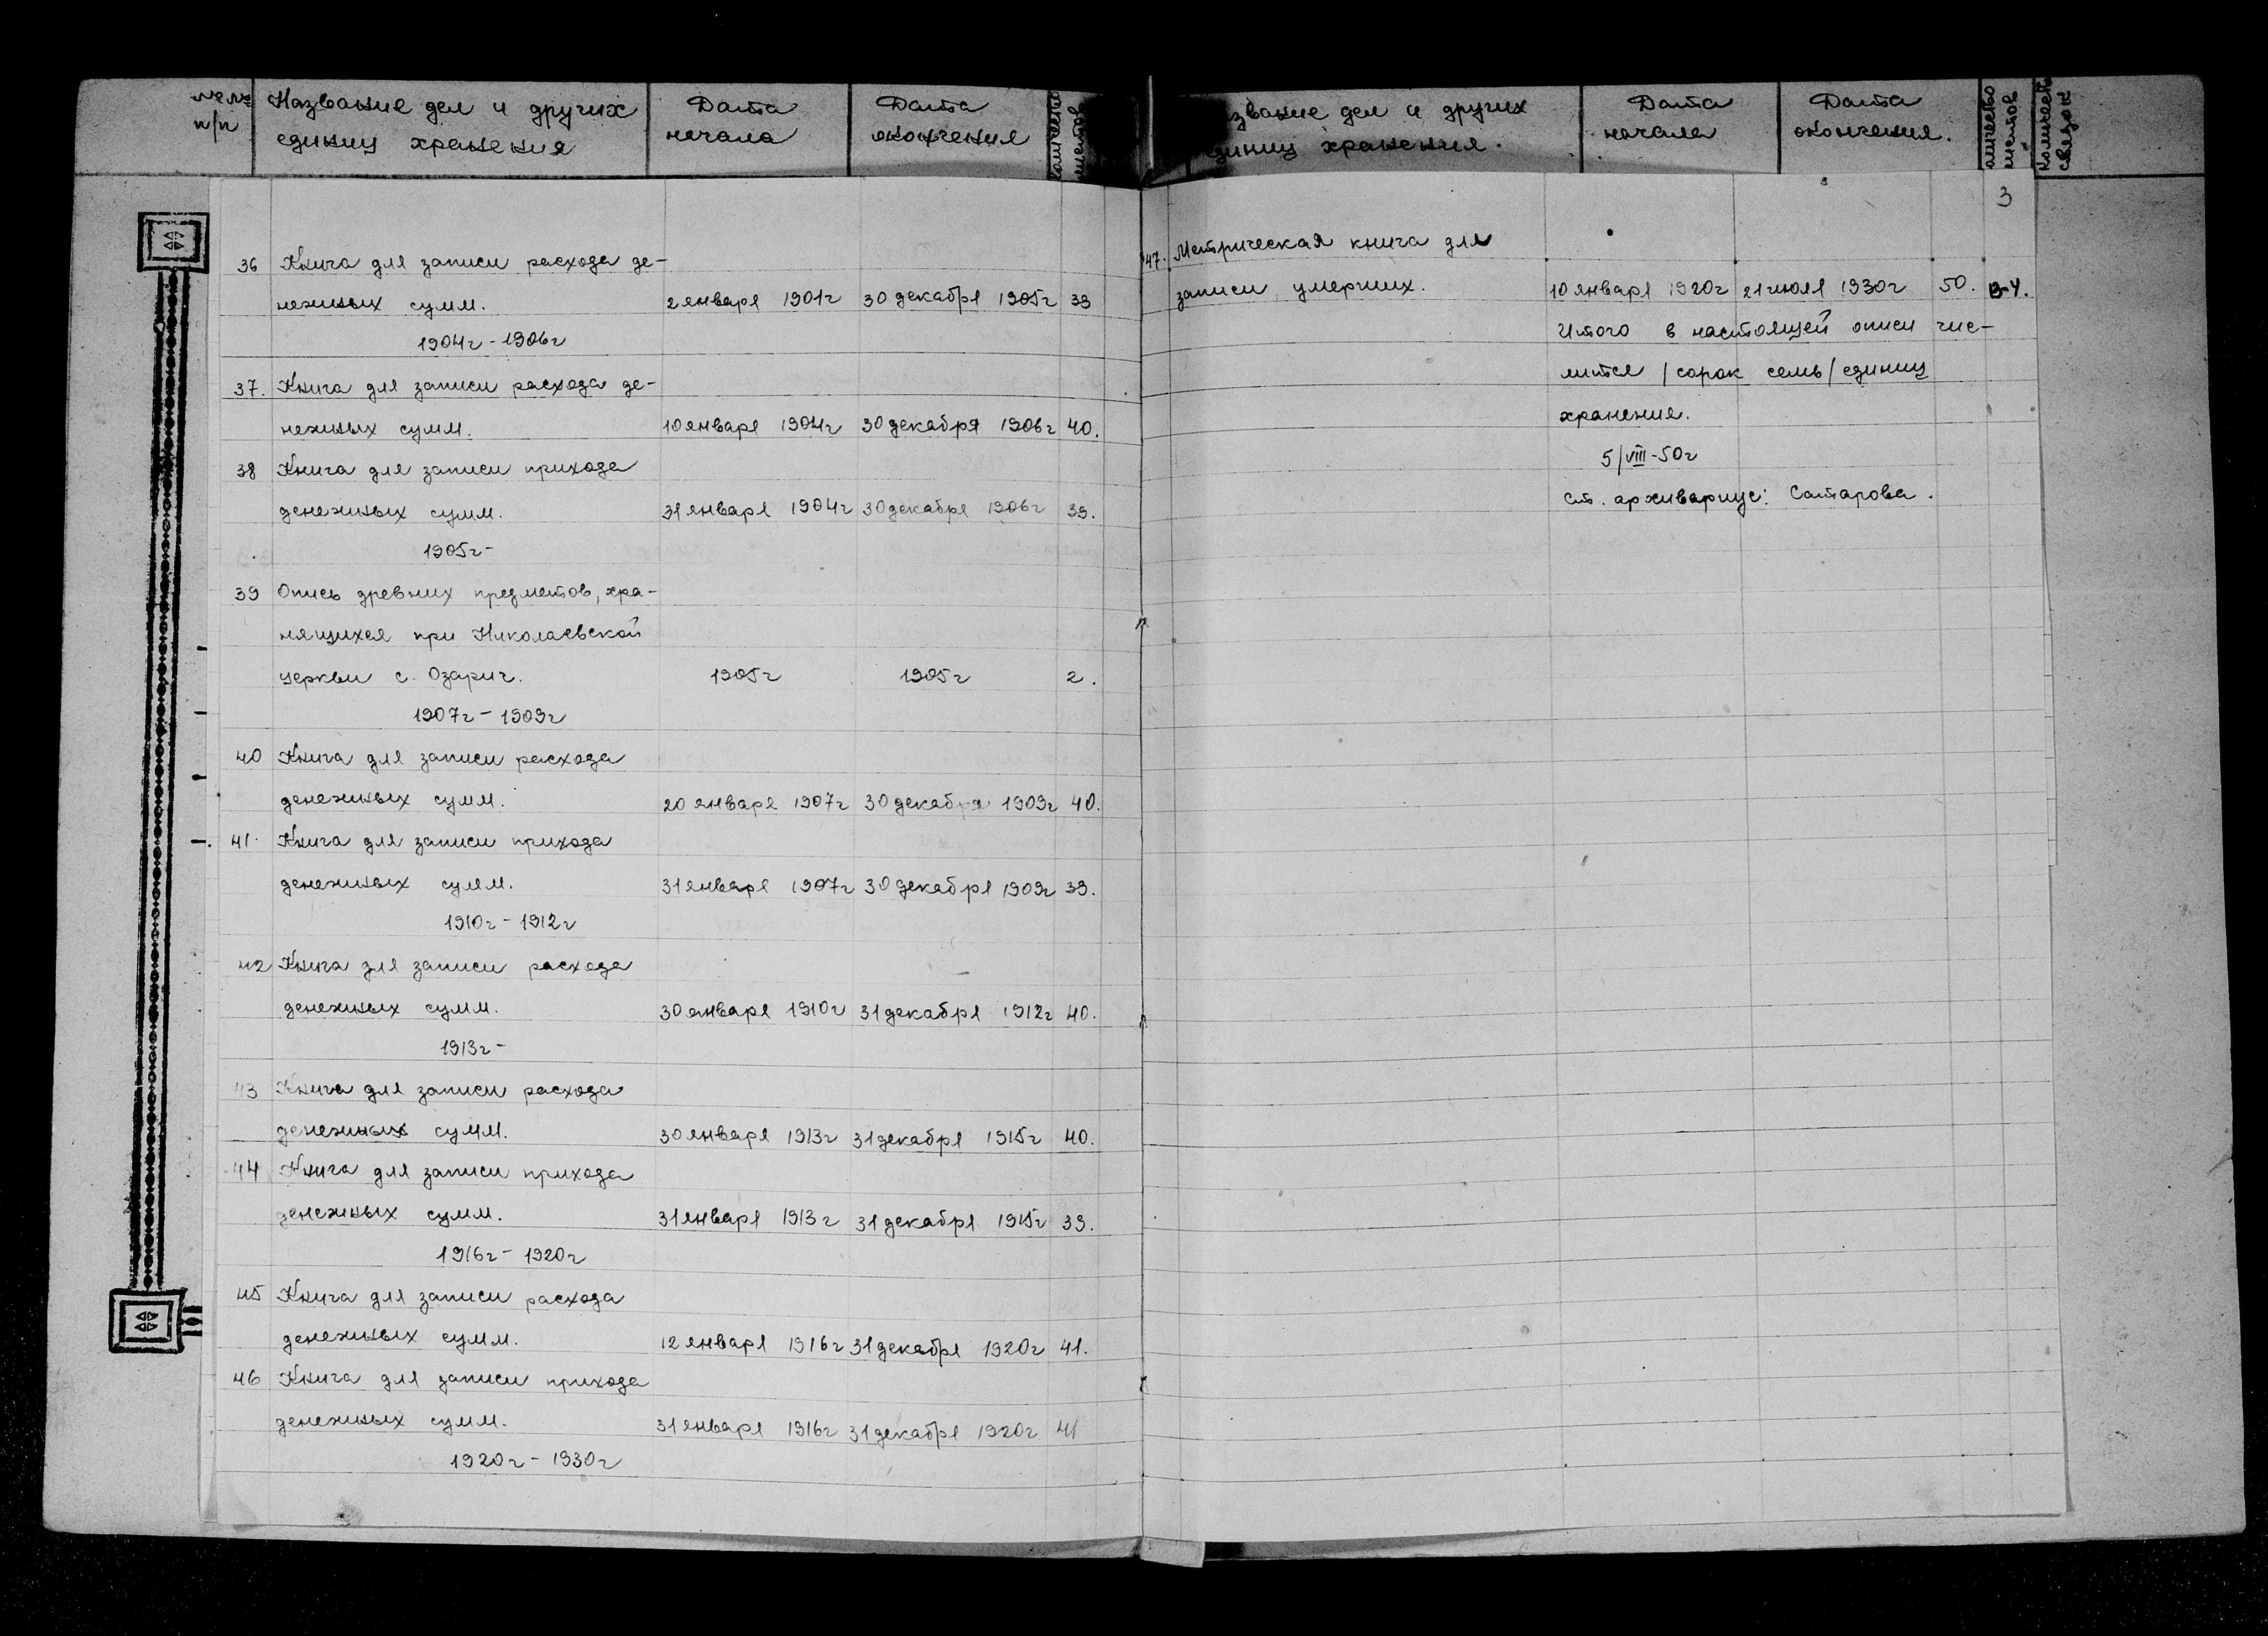 №№ Название дел и других Дата Дата
п/п единиц хранения начала окончения
36 Книга для записи расхода де-
нежных сумм. 2 января 1901г 30 декабря 1905г 39
1904г - 1906г
37. Книга для записи расхода де-
нежных сумм. 10 января 1904г 30 декабря 1906г 40.
38 Книга для записи прихода
денежных сумм. 31 января 1904г 30 декабря 1906г 39.
1905г -
39 Опись древних предметов, хра-
нящихся при Николаевской
церкви с. Озарич. 1905г 1905г 2.
1907г - 1909г
40 Книга для записи расхода
денежных сумм. 20 января 1907г 30 декабря 1909г 40.
41. Книга для записи прихода
денежных сумм. 31 января 1907г 30 декабря 1909г 39.
1910г - 1912г
42 Книга для записи расхода
денежных сумм. 30 января 1910г 31 декабря 1912г 40.
1913г -
43 Книга для записи расхода
денежных сумм. 30 января 1913г 31 декабря 1915г 40.
44 Книга для записи прихода
денежных сумм. 31 января 1913г 31 декабря 1915г 39.
1916г - 1920г
45 Книга для записи расхода
денежных сумм. 12 января 1916г 31 декабря 1920г 41.
46 Книга для записи прихода
денежных сумм. 31 января 1916г 31 декабря 1920г 41
1920г - 1930г
дел и других Дата Дата
хранения. начала окончения.
3
47. Метрическая книга для
записи умерших. 10 января 1920г 21 июля 1930г 50.
Итого в настоящей описи чис-
лится /сорок семь/ единиц
хранения.
5/VIII-50г
Ст. архивариус: Сатарова.